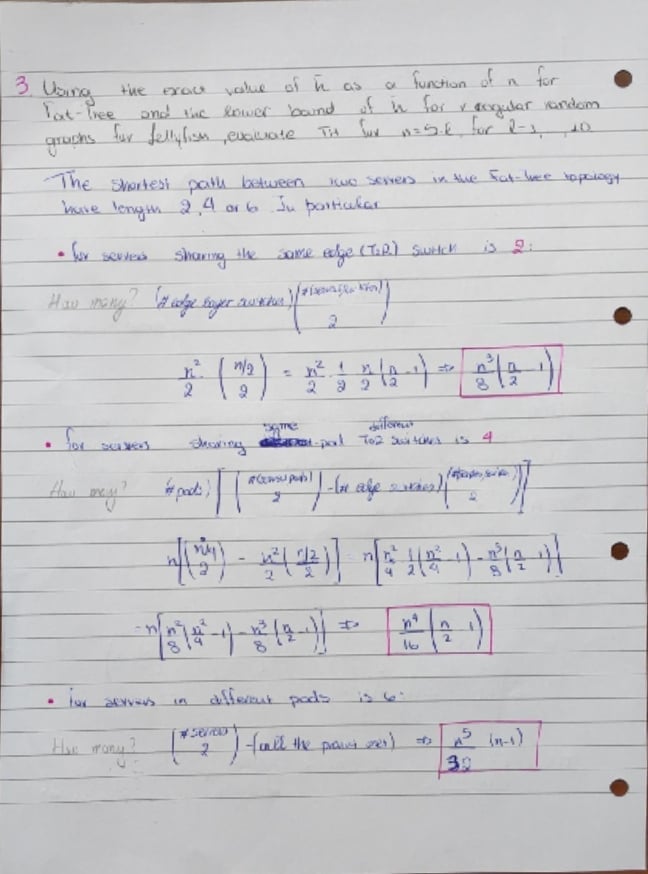 3. Using the exact value of h̄ as a function of n for
Fat-Tree and the lower bound of h̄ for r regular random
graphs for Jellyfish, evaluate TH for
The shortest path between two servers in the Fat-tree topology
have length 2, 4 or 6. In particular
• for servers sharing the same edge (ToR) switch is 2:
How many? (# edge layer switches)
n²/2 · (n/2 2) = n²/2 · 1/2 n/2 (n/2 - 1) ⇒ n³/8 (n/2 - 1)
• for servers sharing same pod different ToR switches is 4
How many? (# pods) [( 2) - (# edge switches)( 2)]
n[(n²/4 2) - n²/2 (n/2 2)] = n[n²/4 1/2 (n²/4 - 1) - n³/8 (n/2 - 1)]
= n[n²/8 (n²/4 - 1) - n³/8 (n/2 - 1)] ⇒ n⁴/16 (n/2 - 1)
• for servers in different pods is 6:
How many? (# servers 2) - (all the previous ones) ⇒ n⁵/32 (n-1)